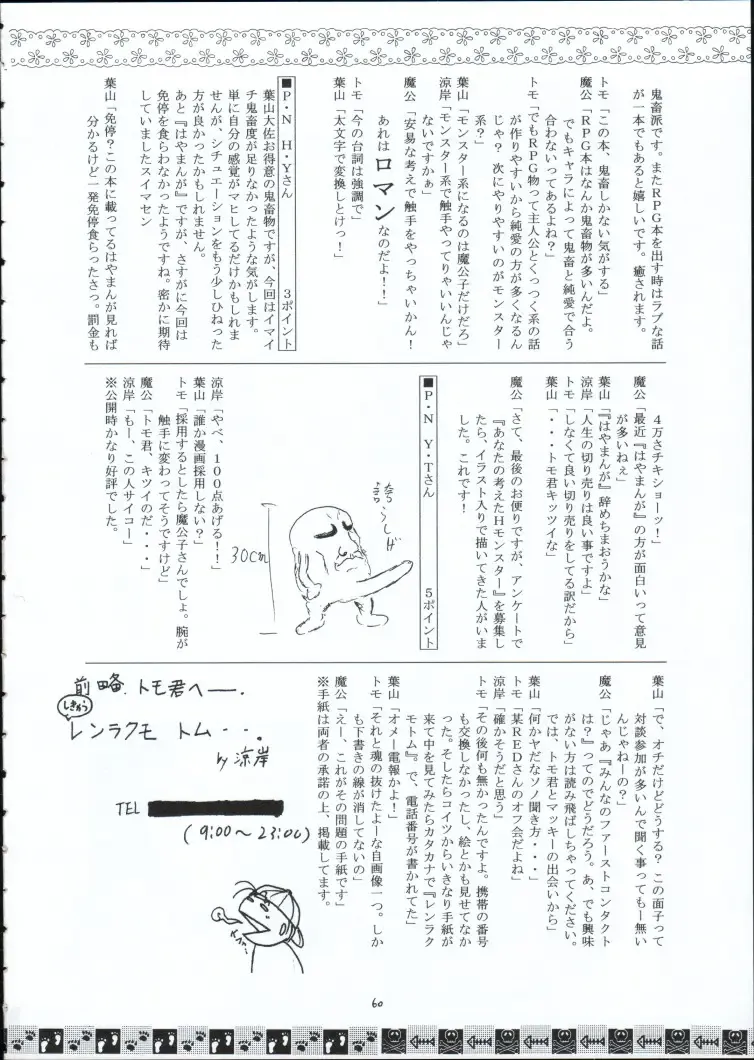 鬼畜派です。またRPG本を出す時はラブな話
が一本でもあると嬉しいです。癒されます。
トモ「この本、鬼畜しかない気がする」
魔公「RPG本はなんか鬼畜物が多いんだよ。
でもキャラによって鬼畜と純愛で合う
合わないってあるよね？」
トモ「でもRPG物って主人公とくっつく系の話
が作りやすいから純愛の方が多くなるん
じゃ？ 次にやりやすいのがモンスター
系？」
葉山「モンスター系になるのは魔公子だけだろ」
涼岸「モンスター系で触手やってりゃいいんじゃ
ないですかぁ」
魔公「安易な考えで触手をやっちゃいかん！
あれは ロマン なのだよ！！」
トモ「今の台詞は強調で」
葉山「太文字で変換しとけっ！」
■P・N H・Yさん 3ポイント
葉山大佐お得意の鬼畜物ですが、今回はイマイ
チ鬼畜度が足りなかったような気がします。
単に自分の感覚がマヒしてるだけかもしれま
せんが、シチュエーションをもう少しひねった
方が良かったかもしれません。
あと『はやまんが』ですが、さすがに今回は
免停を食らわなかったようですね。密かに期待
していましたスイマセン
葉山「免停？この本に載ってるはやまんが見れば
分かるけど一発免停食らったさっ。罰金も
4万さチキショーッ！」
魔公「最近『はやまんが』の方が面白いって意見
が多いねぇ」
葉山「『はやまんが』辞めちまおうかな」
涼岸「人生の切り売りは良い事ですよ」
トモ「しなくて良い切り売りをしてる訳だから」
葉山「・・・トモ君キッツイな」
■P・N Y・Tさん 5ポイント
魔公「さて、最後のお便りですが、アンケートで
『あなたの考えたHモンスター』を募集し
たら、イラスト入りで描いてきた人がいま
した。これです！
誇らしげ
30cm
涼岸「やべ、100点あげる！！」
葉山「誰か漫画採用しない？」
トモ「採用するとしたら魔公子さんでしょ。腕が
触手に変わってそうですけど」
魔公「トモ君、キツイのだ・・・」
涼岸「もー、この人サイコー」
※公開時かなり好評でした。
葉山「で、オチだけどどうする？ この面子って
対談参加が多いんで聞く事ってもー無い
んじゃねーの？」
魔公「じゃあ『みんなのファーストコンタクト
は？』ってのでどうだろう。あ、でも興味
がない方は読み飛ばしちゃってください。
では、トモ君とマッキーの出会いから」
葉山「何かヤだなソノ聞き方・・・」
トモ「某REDさんのオフ会だよね」
涼岸「確かそうだと思う」
トモ「その後何も無かったんですよ。携帯の番号
も交換しなかったし、絵とかも見せてなか
った。そしたらコイツからいきなり手紙が
来て中を見てみたらカタカナで『レンラク
モトム』。で、電話番号が書かれてた」
葉山「オメー電報かよ！」
トモ「それと魂の抜けたよーな自画像一つ。しか
も下書きの線が消してないの」
魔公「えー、これがその問題の手紙です」
※手紙は両者の承諾の上、掲載してます。
前略、トモ君へ―。
しきゅう
レンラクモトム・・。
by 涼岸
TEL
(9:00～23:00)
60